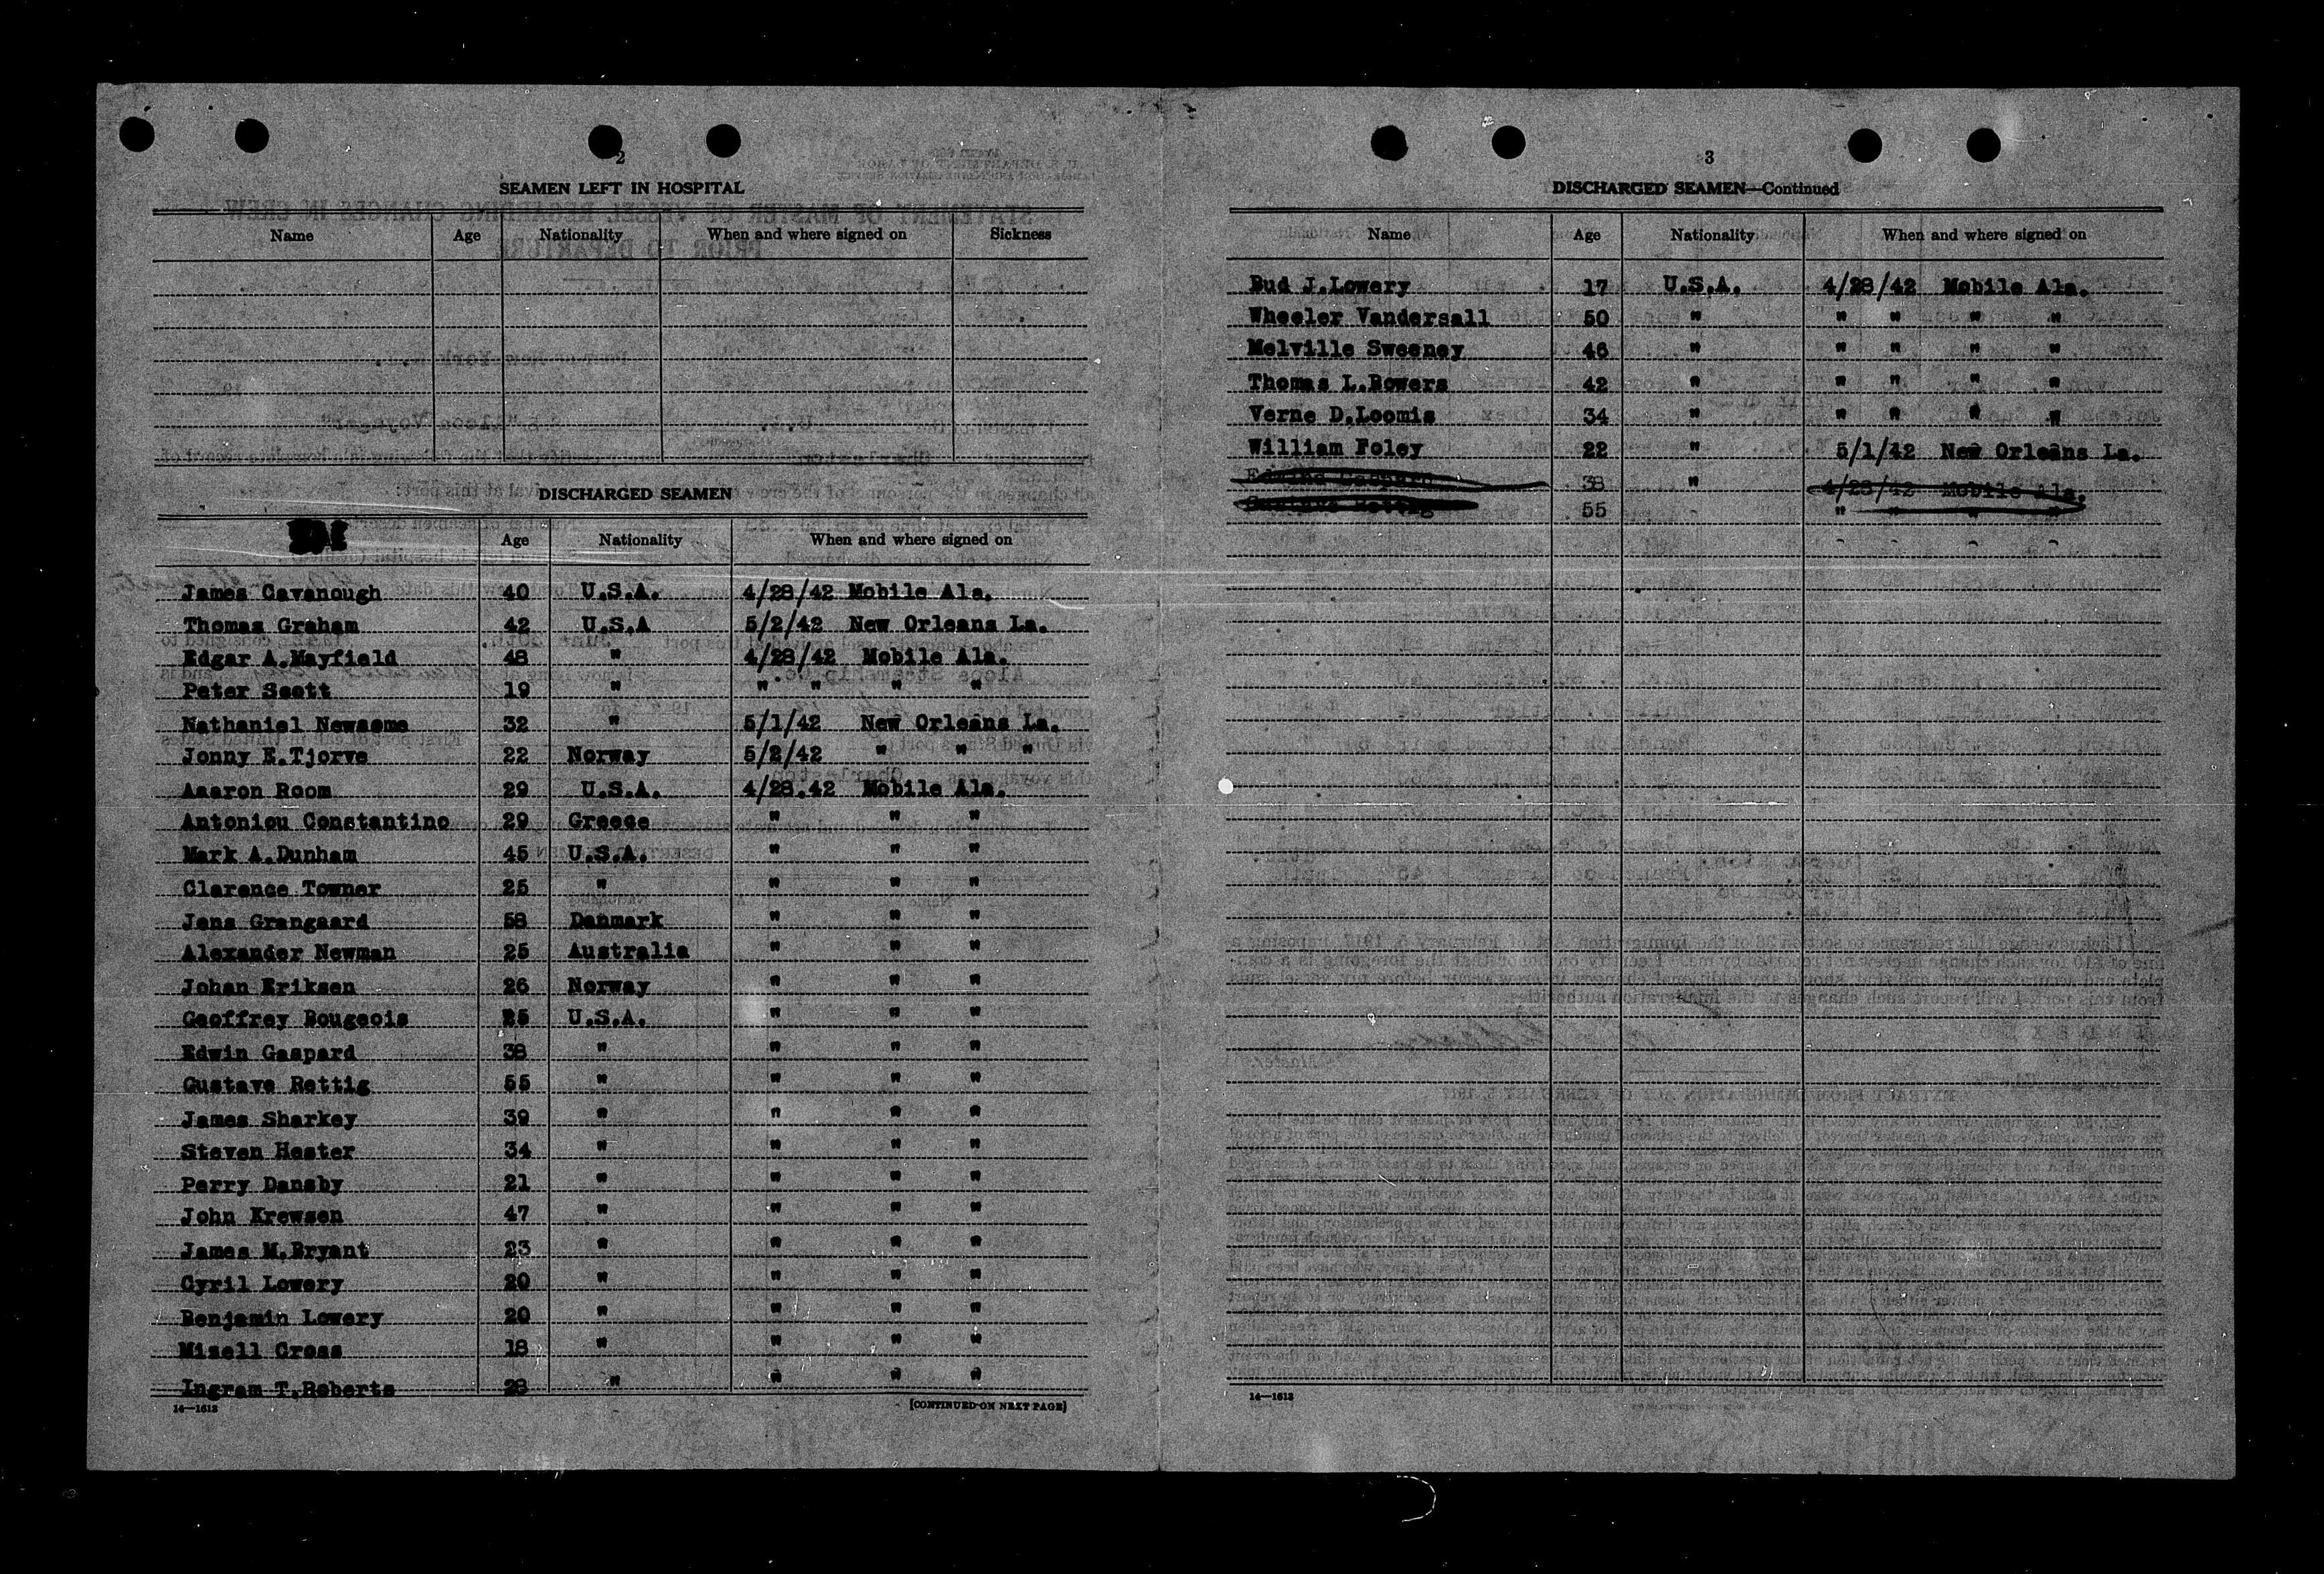 2
SEAMEN LEFT IN HOSPITAL
Name Age Nationality When and where signed on Sickness
DISCHARGED SEAMEN
Age Nationality When and where signed on
James Cavanough 40 U.S.A. 4/28/42 Mobile Ala.
Thomas Graham 42 U.S.A 5/2/42 New Orleans La.
Edgar A.Mayfield 48 " 4/28/42 Mobile Ala.
Peter Scott 19 " " " " "
Nathaniel Newsome 32 " 5/1/42 New Orleans La.
Jonny E.Tjorve 22 Norway 5/2/42 " " "
Aaaron Room 29 U.S.A. 4/28.42 Mobile Ala.
Antoniou Constantino 29 Greece " " "
Mark A.Dunham 45 U.S.A. " " "
Clarence Towner 25 " " " "
Jens Grangaard 58 Danmark " " "
Alexander Newman 25 Australia " " "
Johan Eriksen 26 Norway " " "
Geoffrey Bougeois 25 U.S.A. " " "
Edwin Gaspard 38 " " " "
Gustave Rettig 55 " " " "
James Sharkey 39 " " " "
Steven Hester 34 " " " "
Perry Dansby 21 " " " "
John Krewsen 47 " " " "
James M.Bryant 23 " " " "
Cyril Lowery 20 " " " "
Benjamin Lowery 20 " " " "
Mizell Cross 18 " " " "
Ingram T.Roberts 28 " " " "
14—1613 [CONTINUED ON NEXT PAGE]
3
DISCHARGED SEAMEN—Continued
Name Age Nationality When and where signed on
Bud J.Lowery 17 U.S.A. 4/28/42 Mobile Ala.
Wheeler Vandersall 50 " " " " "
Melville Sweeney 46 " " " " "
Thomas L.Bowers 42 " " " " "
Verne D.Loomis 34 " " " " "
William Foley 22 " 5/1/42 New Orleans La.
38 " 4/28/42 Mobile Ala.
55 " " " "
14—1613